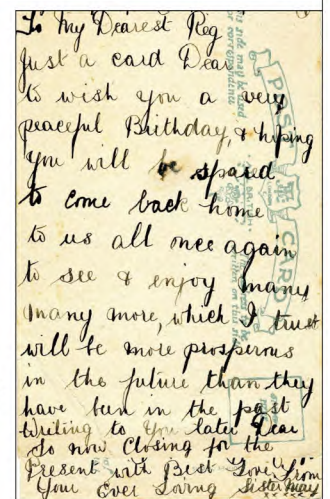 To My Dearest Reg
Just a card Dear
to wish you a very
peaceful Birthday, & hoping
you will be spared
to come back home
to us all once again
to see & enjoy many
many more, which I trust
will be more prosperous
in the future than they
have been in the past
Writing to You later Dear
So now Closing for the
Present with Best Love from
Your Ever Loving Sister Mary
xxxxxx
POST CARD
This side may be used
for correspondence